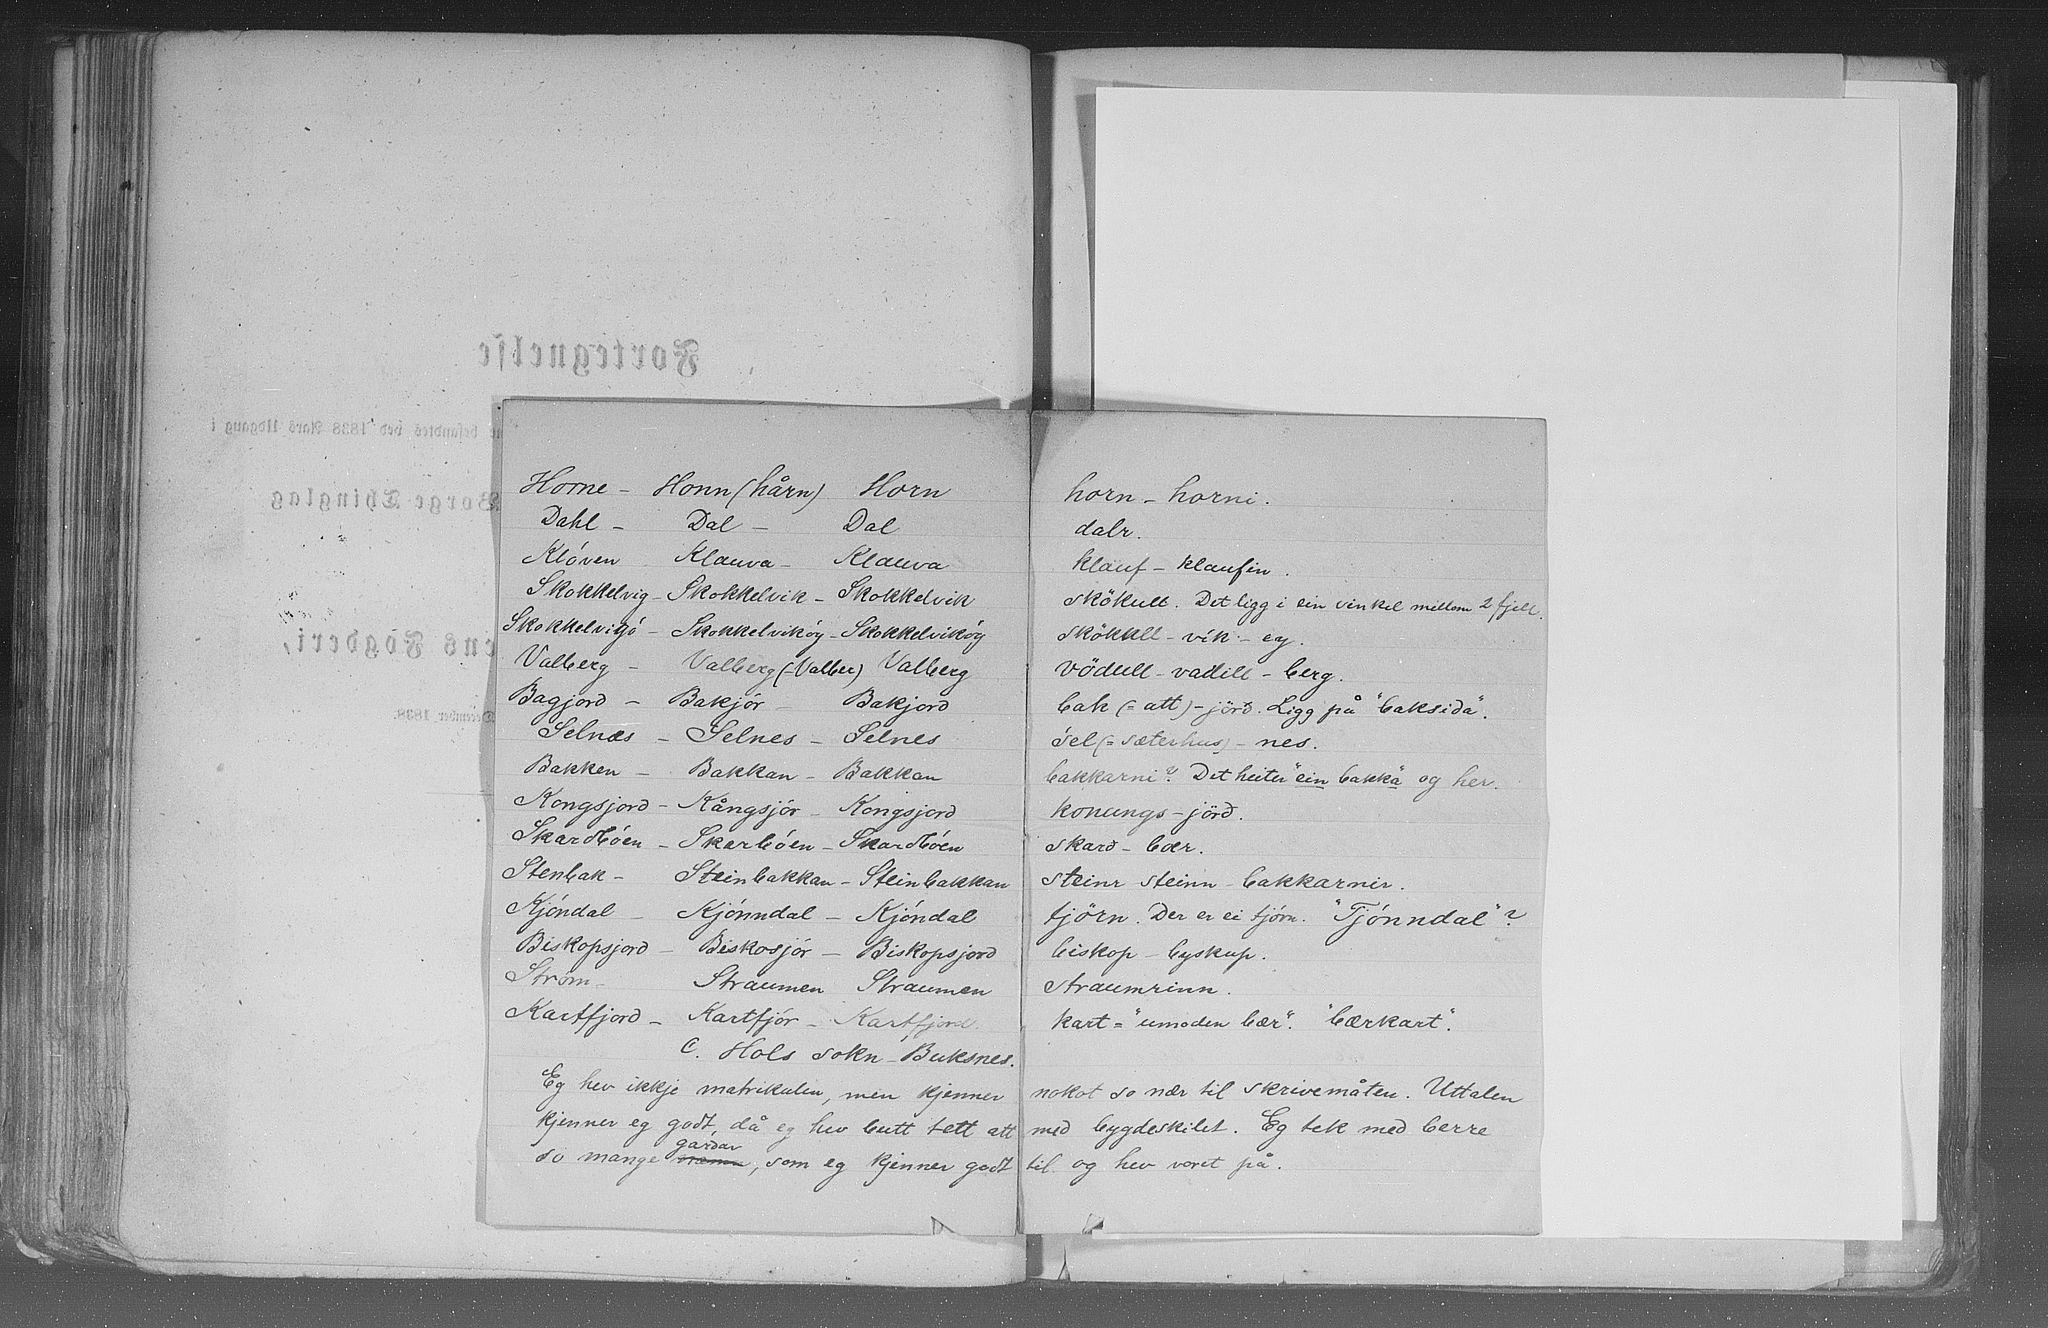 Fortegnelse
befandtes ved 1838 Aars Udgang i
Borge Thinglag
ens Fogderi,
December 1838.
Horne - Honn (hårn) Horn horn - horni.
Dahl - Dal - Dal dalr.
Klóven Klauva - Klauva klauf - klaufin.
Skokkelvig - Skokkelvik - Skokkelvik skökull. Det ligg i ein vinkel millom 2 fjell.
Skokkelvigó - Skokkelvikóy - Skokkelvikóy skökull - vik - ey.
Valberg - Valberg (-Valber) Valberg vödull - vadill - berg.
Bagjord - Bakjór - Bakjord bak (= att) - jörð. Ligg på "baksida".
Selnæs - Selnes - Selnes sel (= sæterhus) - nes.
Bakken - Bakkan - Bakkan bakkarni? Det heiter "ein bakka" og her.
Kongsjord - Kångsjór - Kongsjord konungs - jörð.
Skardbóen - Skarbóen - Skardbóen skard - bœr.
Stenbak - Steinbakkan - Steinbakkan steinr steinn - bakkarnir.
Kjóndal - Kjónndal - Kjóndal tjörn. Der er ei tjórn. "Tjónndal"?
Biskopsjord - Biskosjór - Biskopsjord biskop - byskup.
Strøm - Straumen Straumen straumrinn.
Kartfjord - Kartfjór - Kartfjord kart = "umoden bær". "bærkart".
C. Hols sokn - Buksnes.
Eg hev ikkje matrikulen, men kjenner nokot so nær til skrivemåten. Uttalen
kjenner eg godt, då eg hev butt tett att med bygdeskilet. Eg tek med berre
so mange gardar, som eg kjenner godt til og hev voret på.